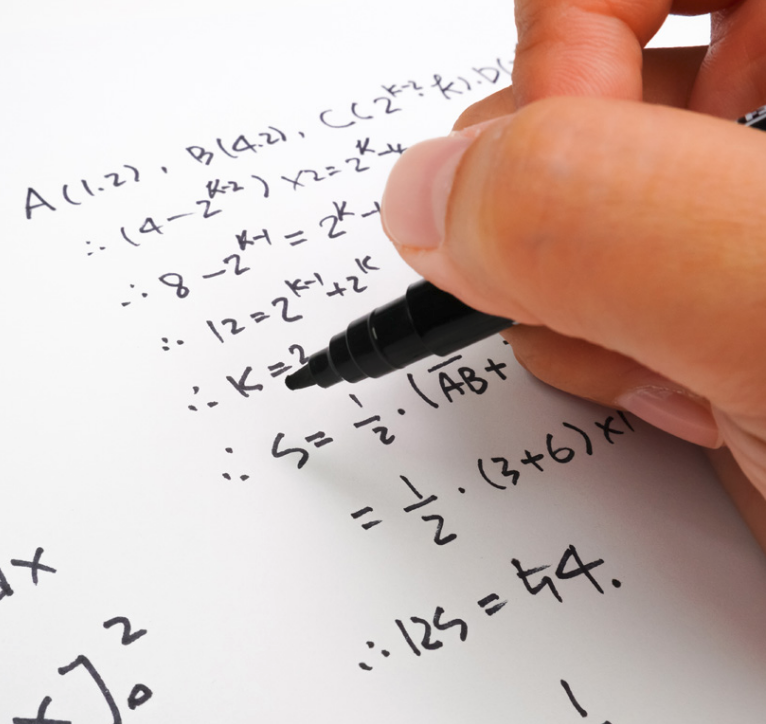 A(1.2), B(4.2), C(2^{K-2}. k).D(
∴ (4-2^{K-2}) ×2=2^K-4
∴ 8-2^{K-1} = 2^K-
∴ 12=2^{K-1}+2^K
∴ K=
∴ S= 1/2 · (A̅B̅+
= 1/2 · (3+6)×1
∴ 12S = 54.
x
x].²₀
1